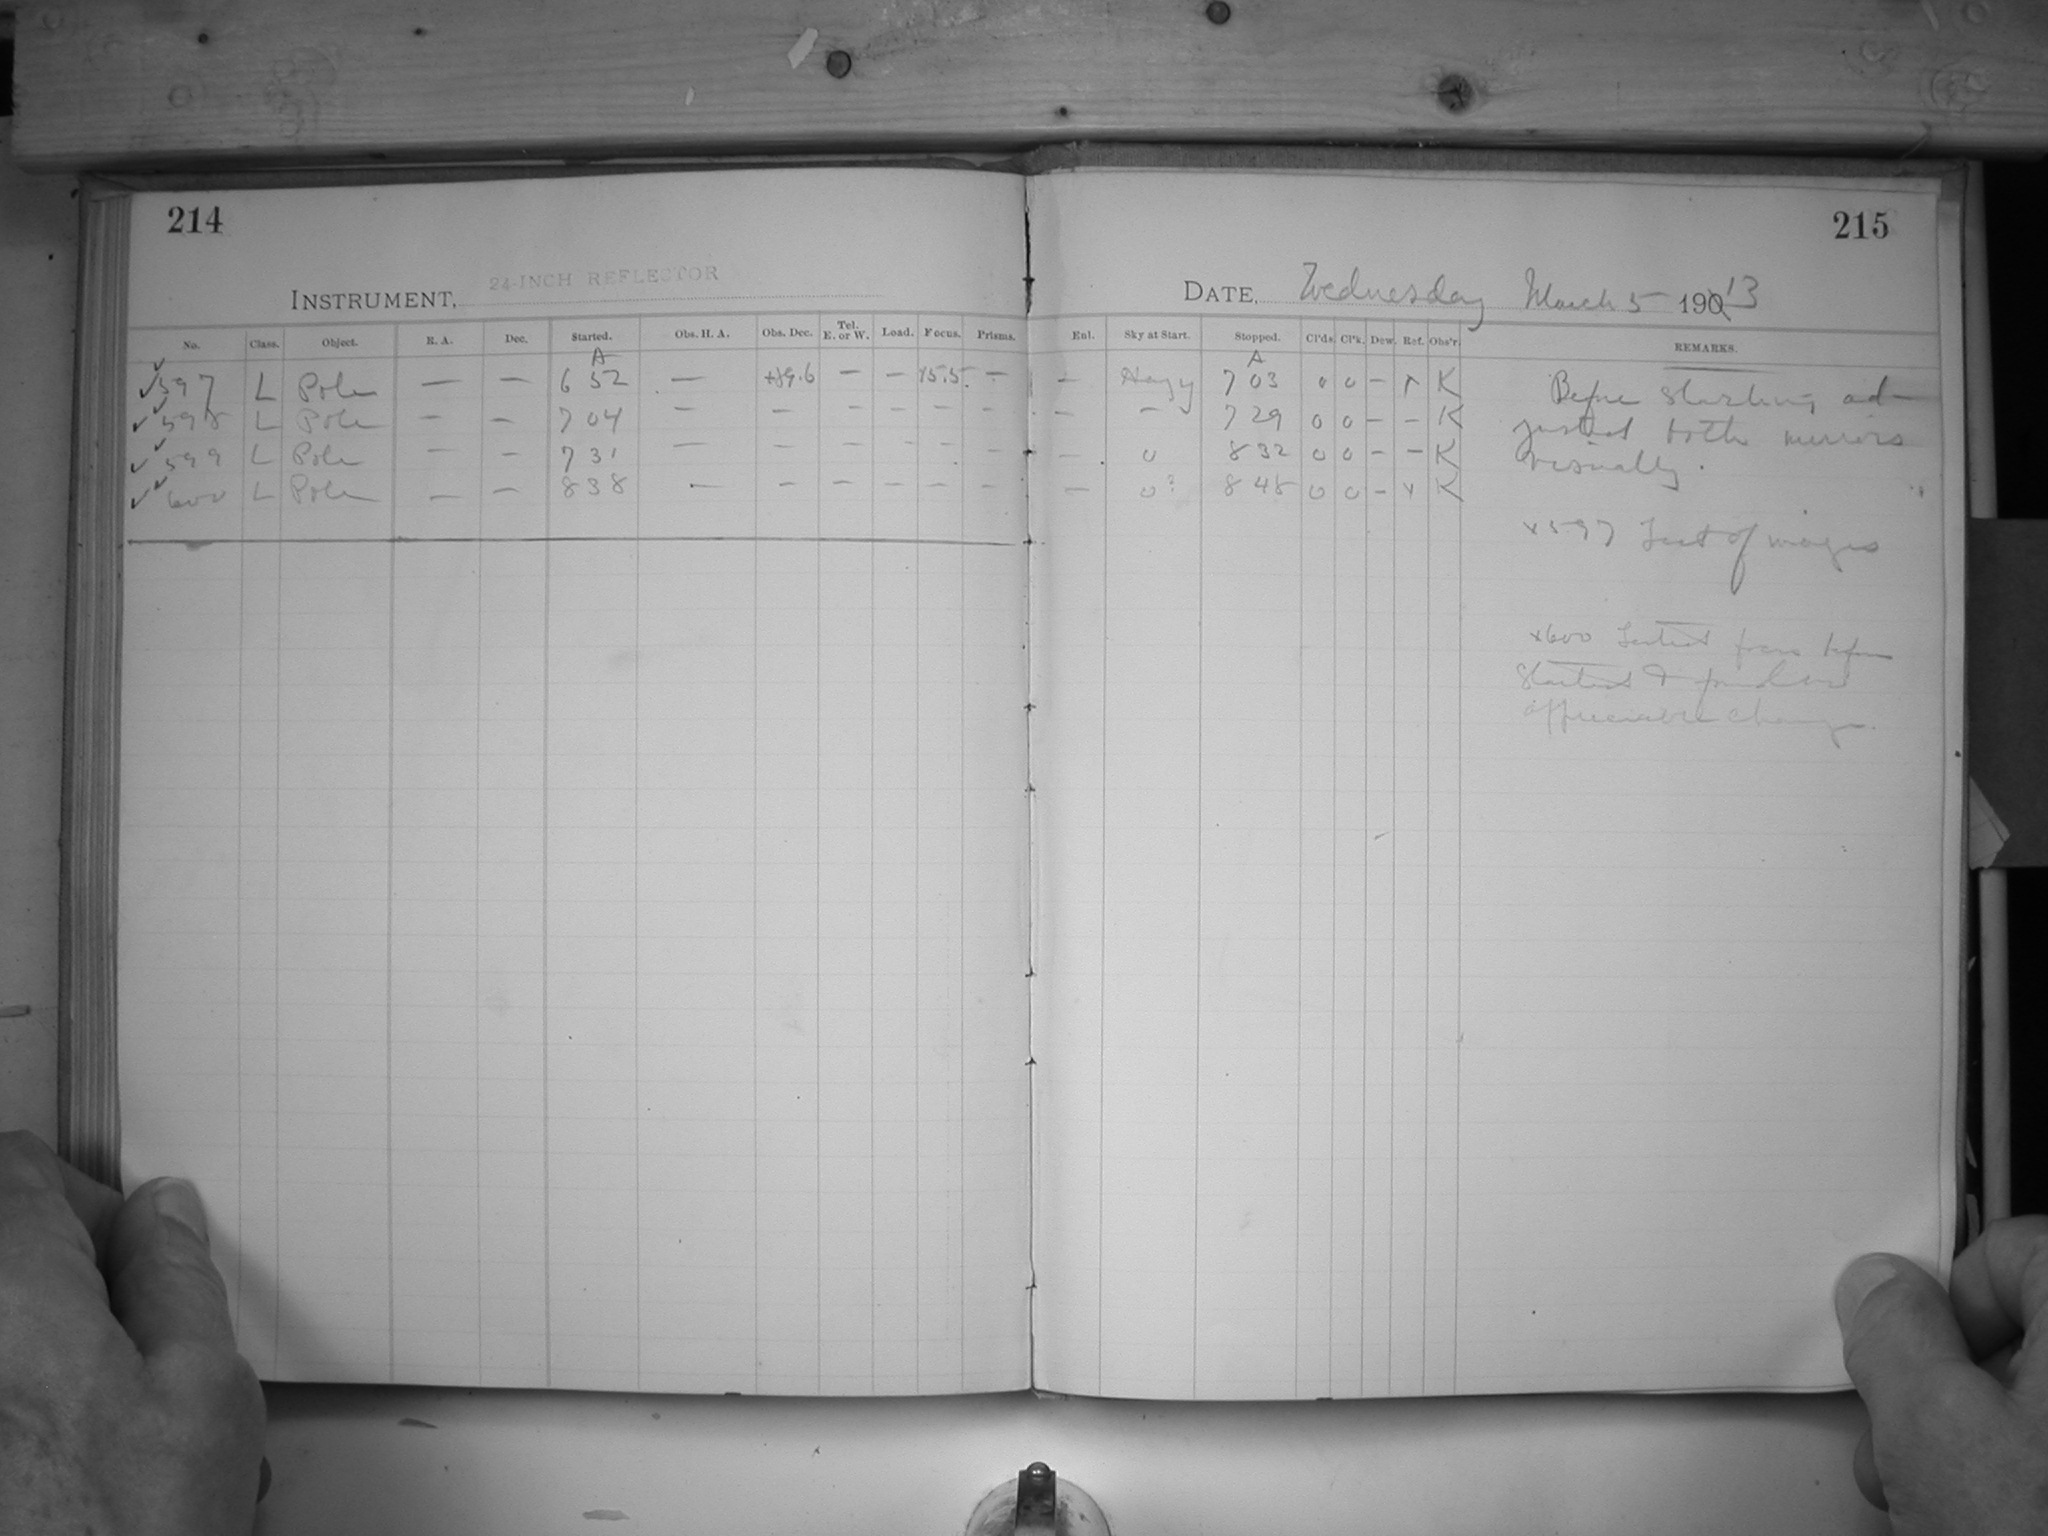 214
INSTRUMENT, 24-INCH REFLECTOR
No. Class. Object. R. A. Dec. Started. Obs. H. A. Obs. Dec. Tel. E. or W. Load. Focus. Prisms.
A
✓597 L Pole — — 6 52 — +89.6 — — 15.5 —
✓598 L Pole — — 7 04 — — — — — —
✓599 L Pole — — 7 31 — — — — — —
✓600 L Pole — — 8 38 — — — — — —
215
DATE, Wednesday March 5 190 13
Enl. Sky at Start. Stopped. Cl'ds. Cl'k. Dew. Ref. Obs'r. REMARKS.
A
— Hazy 7 03 0 0 — x K
— — 7 29 0 0 — — K
— 0 8 32 0 0 — — K
— 0? 8 48 0 0 — x K
Before starting ad-
justed both mirrors
visually.
x597 Test of images
x600 Tested focus before
started & found no
appreciable change.